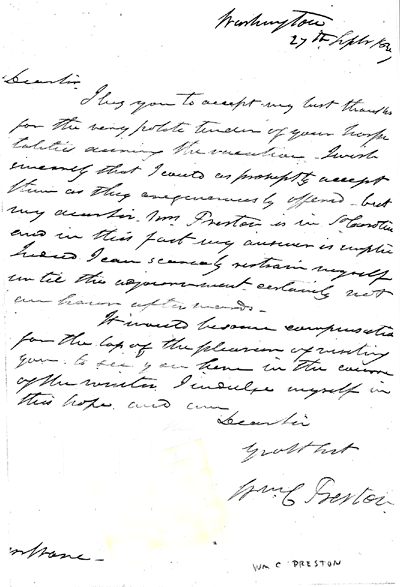 Washington
27th Sept
Dear Sir
I beg you to accept my best thanks
for the very polite tender of your hospi
talities during the vacation. I wish
sincerely that I could as promptly accept
them as they are generously offered - but
my dear Sir. Mrs Preston is in S Carolin
and in this fact my answer is implied
Indeed I can scarcely restrain myself
until the adjournment certainly not
an hour afterwards -
It would become compensatio
for the loss of the pleasure of visiting
you. to see you here in the course
of the winter. I indulge myself in
this hope. and am
Dear Sir
Wm C Preston
WM C PRESTON